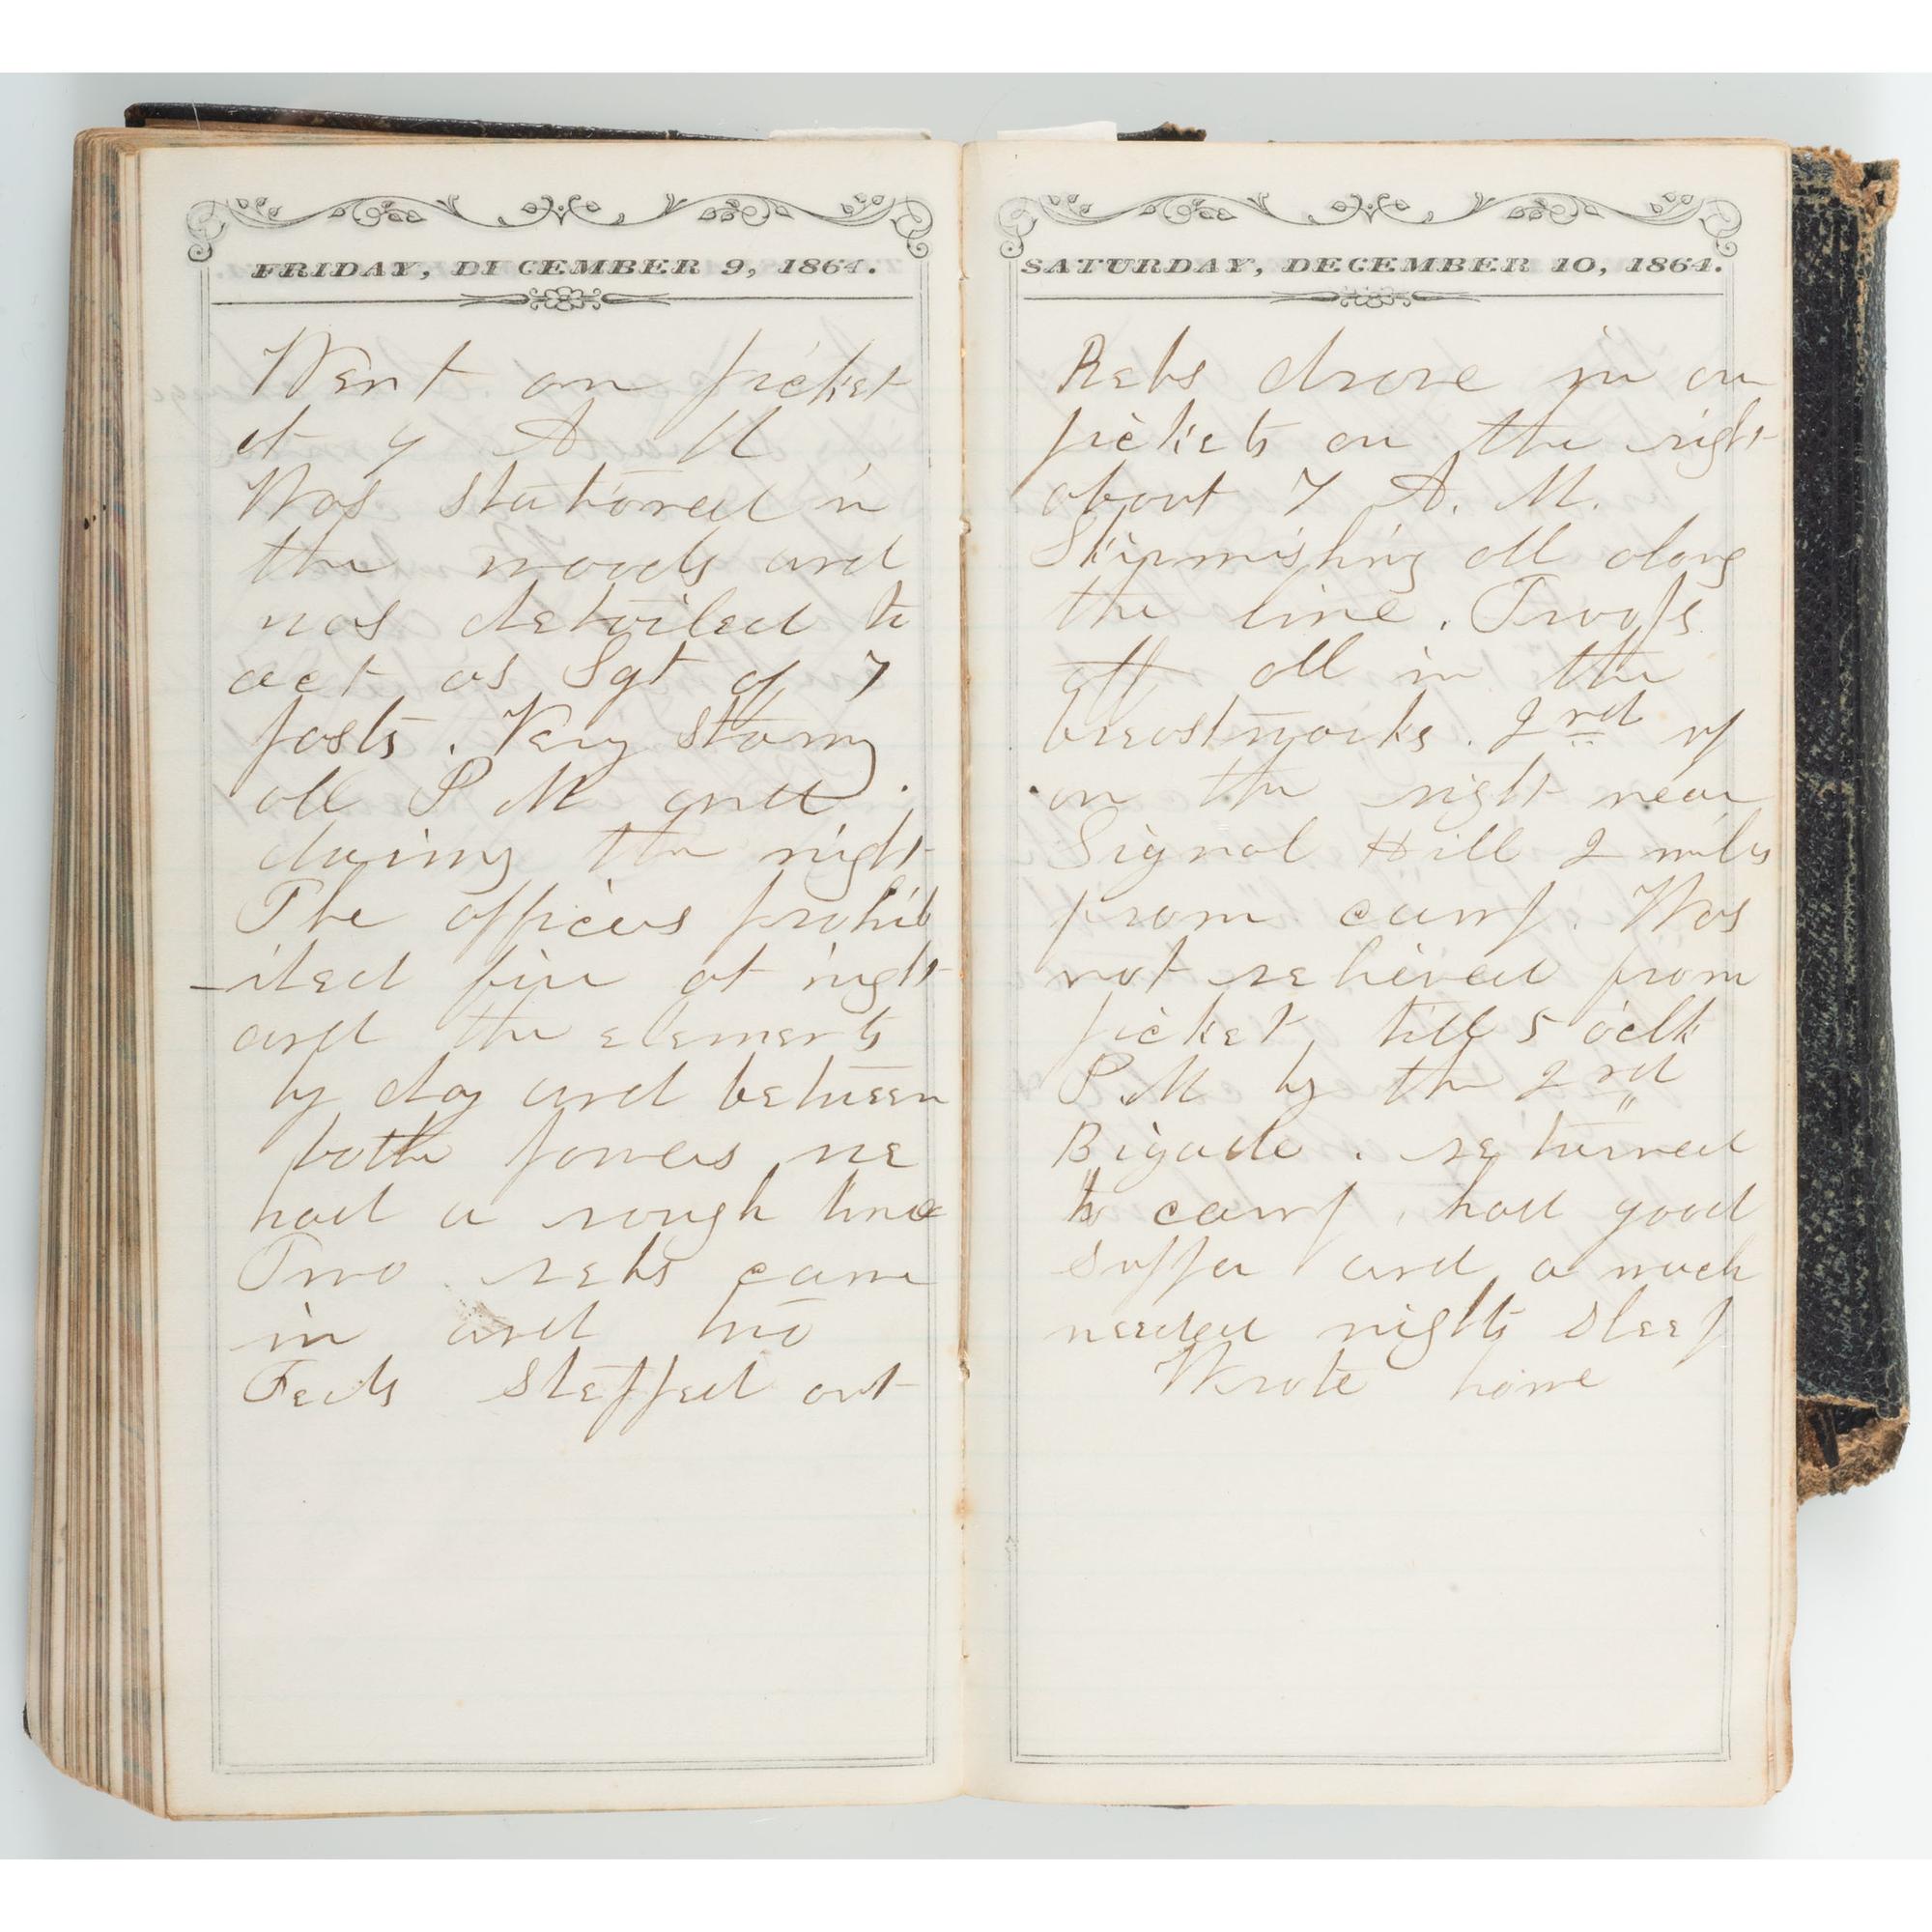 FRIDAY, DECEMBER 9, 1864.
Went on picket
at 9 A M
Was stationed in
the woods and
was detailed to
act as Sgt of 7
posts. Very stormy
all P M and
during the night
The officers prohib
-ited fire at night
and the elements
by day and between
both powers we
had a rough time
Two rebs came
in and two
Feds stepped out
SATURDAY, DECEMBER 10, 1864.
Rebs drove in our
pickets on the right
about 7 A. M.
Skirmishing all along
the line. Troops
all in the
breastworks. 23rd up
on the right near
Signal Hill 2 miles
from camp. Was
not relieved from
picket till 5 oclk
P.M by the 2nd
Bigade. returned
to camp, had good
supper and a much
needed nights sleep
Wrote home